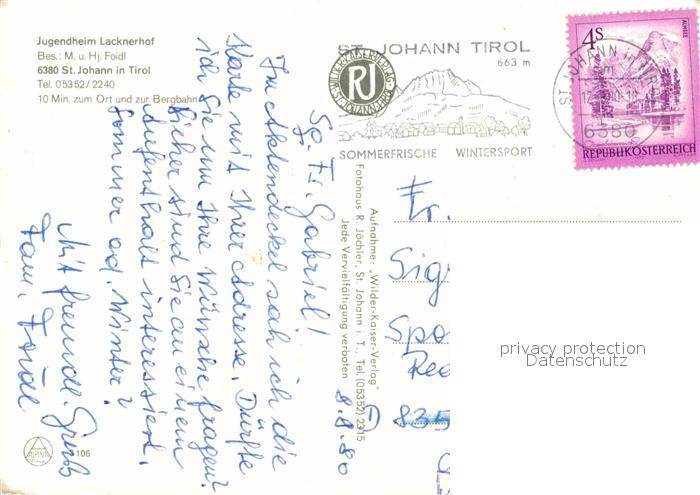 Jugendheim Lacknerhof
Bes.: M. u. Hj. Foidl
6380 St. Johann in Tirol
Tel. 05352/2240
10 Min. zum Ort und zur Bergbahn
8.8.80
Sg. Fr. Gabriel!
Im Aktendeckel sah ich die
Karte mit Ihrer Adresse. Dürfte
ich Sie um Ihre Wünsche fragen?
Sicher sind Sie an einem
Aufenthalt interessiert.
Sommer od. Winter?
Mit freundl. Gruß
Fam. Foidl
ALPINA
106
Aufnahme: „Wilder-Kaiser-Verlag"
Fotohaus R. Jöchler, St. Johann i. T., Tel. (05352) 2315
Jede Vervielfältigung verboten
ST. JOHANN TIROL
663 m
RJ
SOMMERFRISCHE WINTERSPORT
ST. JOHANN in TIROL
6380
4S
ALMSEE
REPUBLIK ÖSTERREICH
Fr.
Sig
Spo
Ree
D 835
privacy protection
Datenschutz